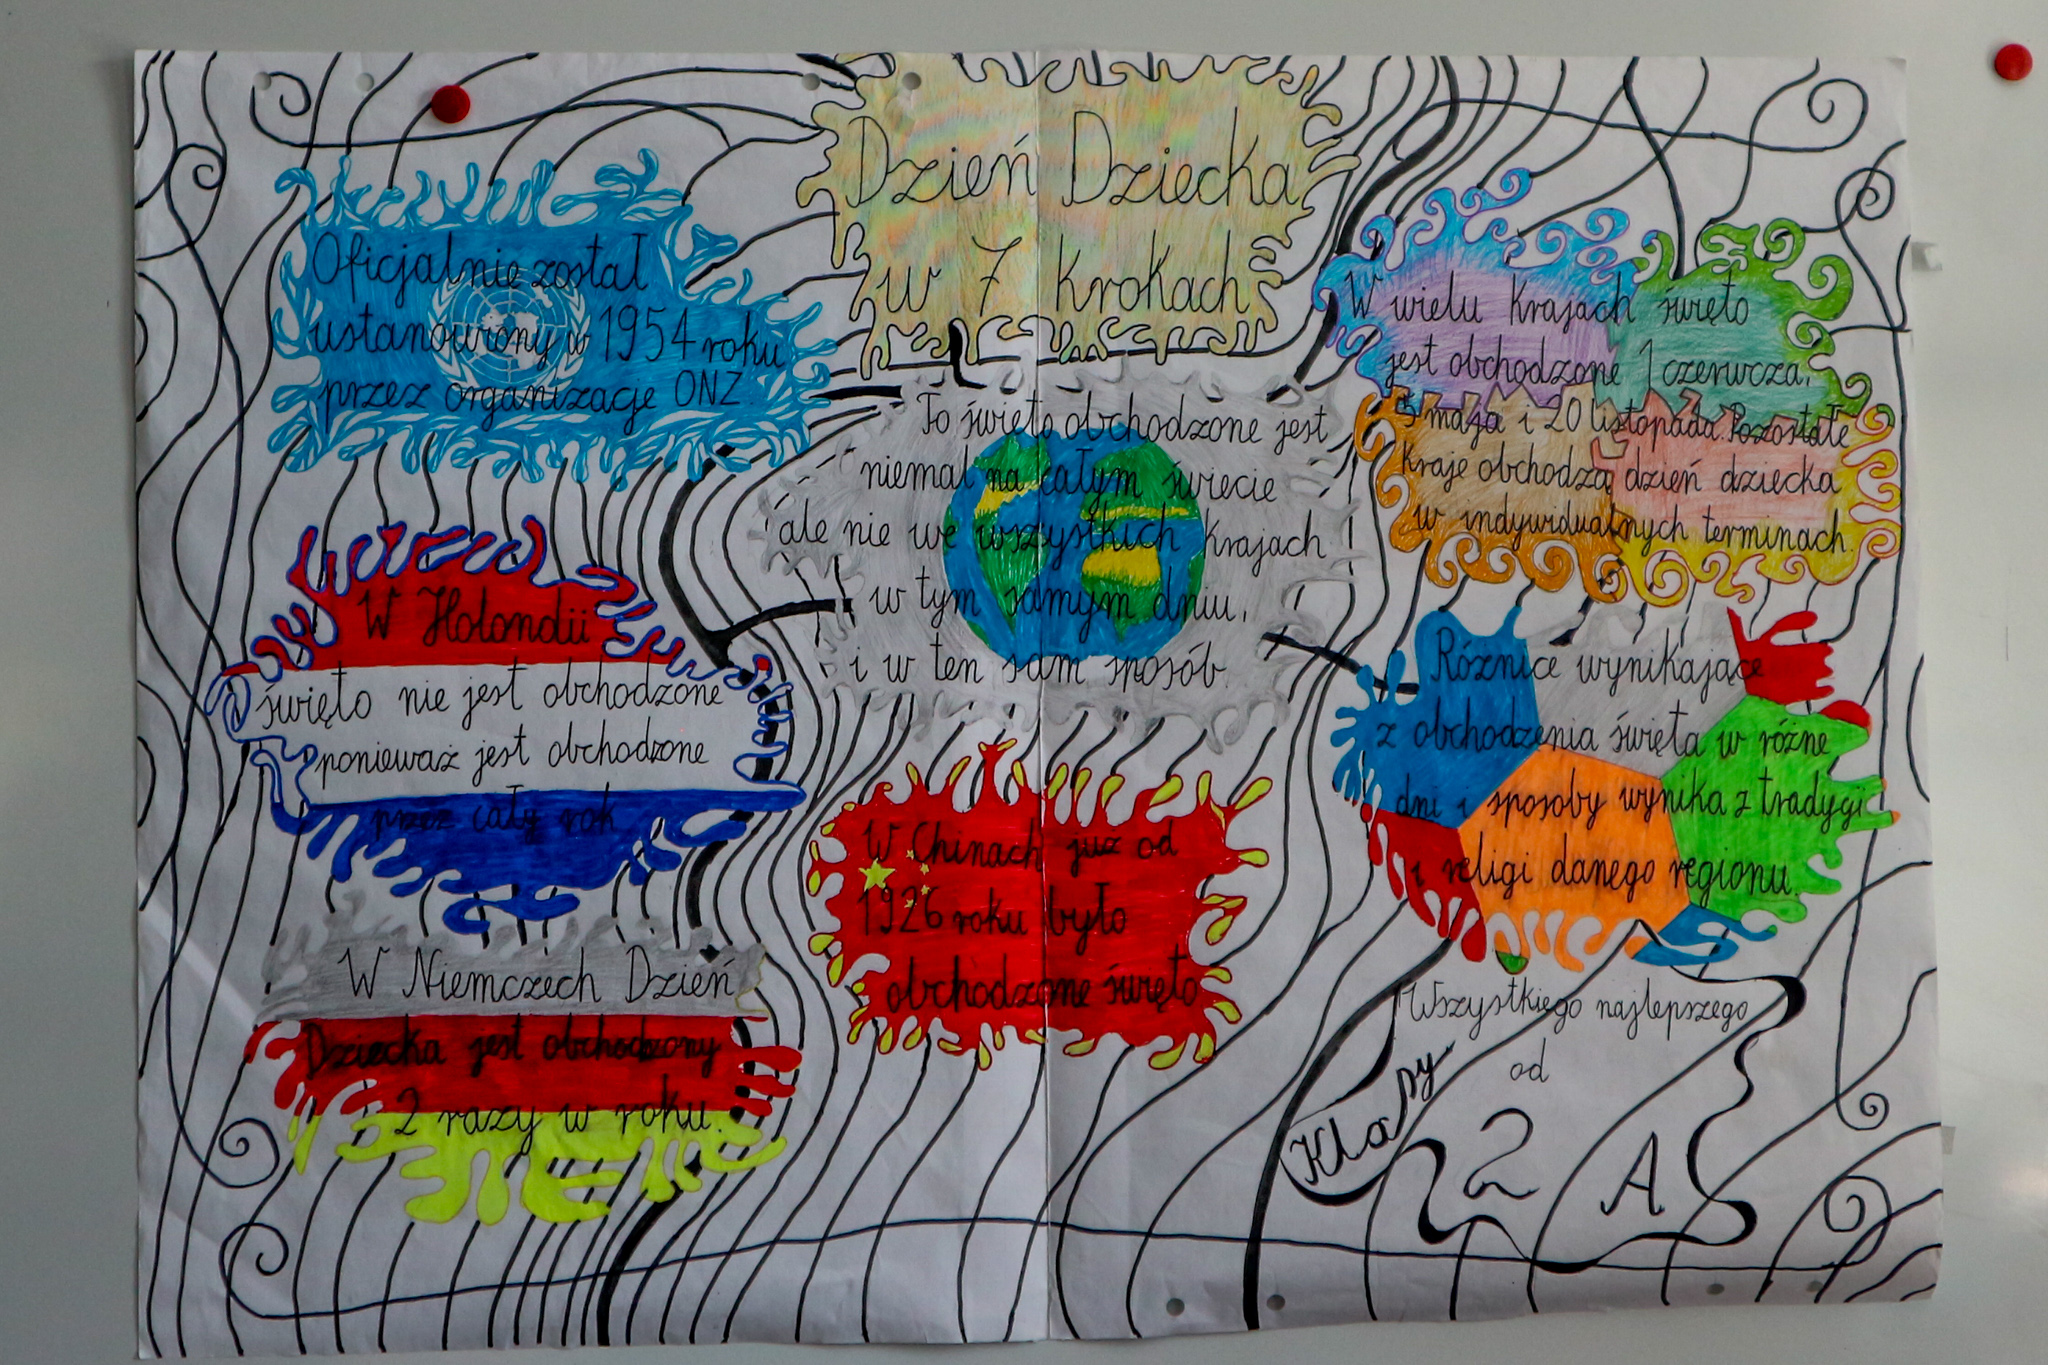 Dzień Dziecka
w 7 Krokach
Oficjalnie został
ustanowiony w 1954 roku
przez organizację ONZ.
To święto obchodzone jest
niemal na całym świecie
ale nie we wszystkich Krajach
w tym samym dniu,
i w ten sam sposób.
W wielu Krajach święto
jest obchodzone 1 czerwcza,
5 maja i 20 listopada. Pozostałe
Kraje obchodzą dzień dziecka
w indywidualnych terminach.
W Holondii
święto nie jest obchodzone
ponieważ jest obchodzone
przez cały rok
W Chinach już od
1926 roku było
obchodzone święto
Różnice wynikające
z obchodzenia święta w różne
dni i sposoby wynika z tradygi
i religi danego regionu.
W Niemczech Dzień
Dziecka jest obchodzony
2 razy w roku.
Wszystkiego najlepszego
od
Klasy
2 A